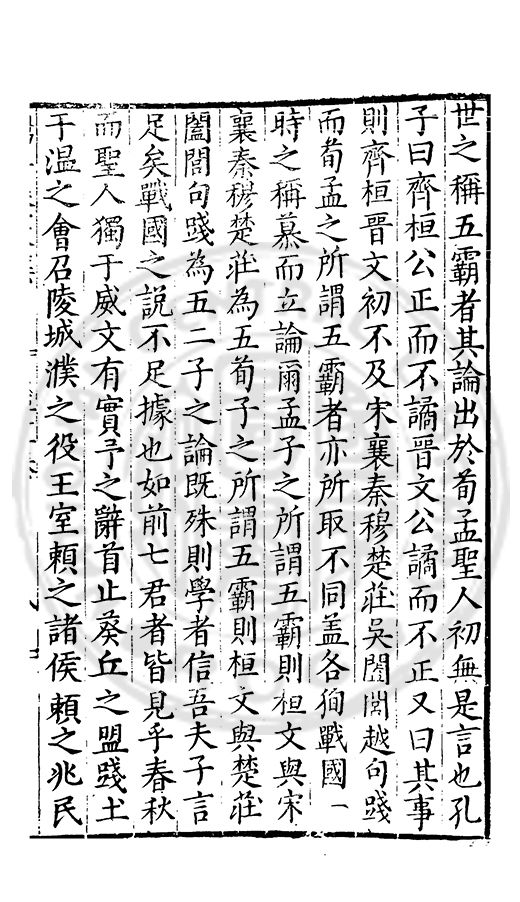 世之稱五霸者其論出於荀孟聖人初無是言也孔
子曰齊桓公正而不譎晉文公譎而不正又曰其事
則齊桓晉文初不及宋襄秦穆楚莊吳闔閭越句踐
而荀孟之所謂五霸者亦所取不同盖各徇戰國一
時之稱慕而立論爾孟子之所謂五霸則桓文與宋
襄秦穆楚莊為五荀子之所謂五霸則桓文與楚莊
闔閭句踐為五二子之論既殊則學者信吾夫子言
足矣戰國之說不足據也如前七君者皆見乎春秋
而聖人獨于威文有實予之辭首止葵丘之盟踐土
于温之會召陵城濮之役王室頼之諸侯頼之兆民